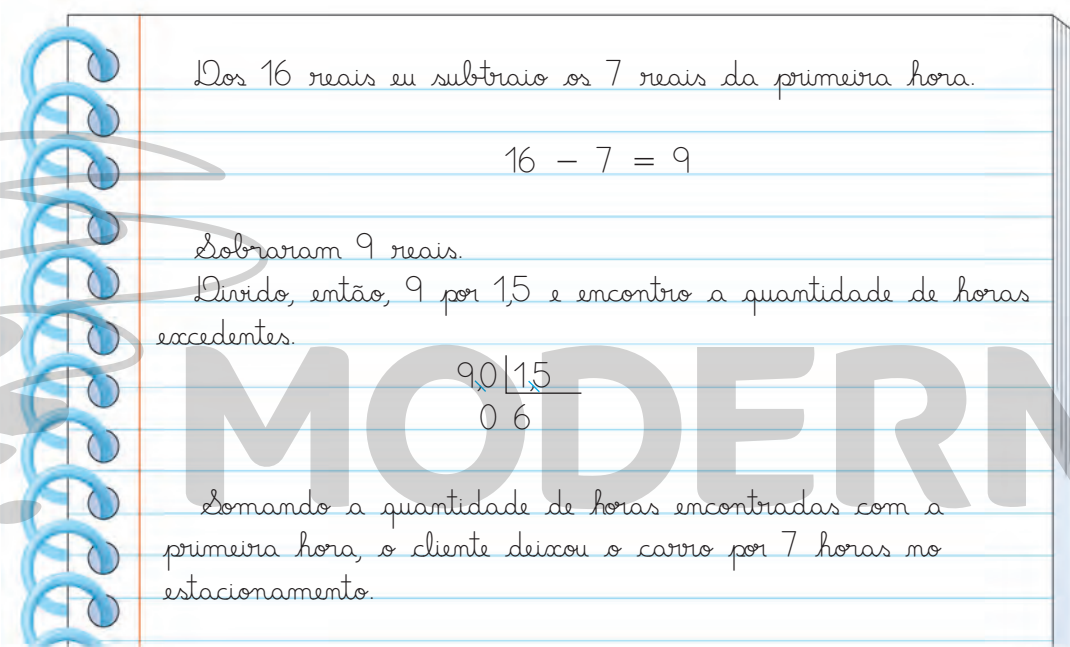 Dos 16 reais eu subtraio os 7 reais da primeira hora.
16 – 7 = 9
Sobraram 9 reais.
Divido, então, 9 por 1,5 e encontro a quantidade de horas
excedentes.
9,0 1,5
0 6
Somando a quantidade de horas encontradas com a
primeira hora, o cliente deixou o carro por 7 horas no
estacionamento.
MODERN